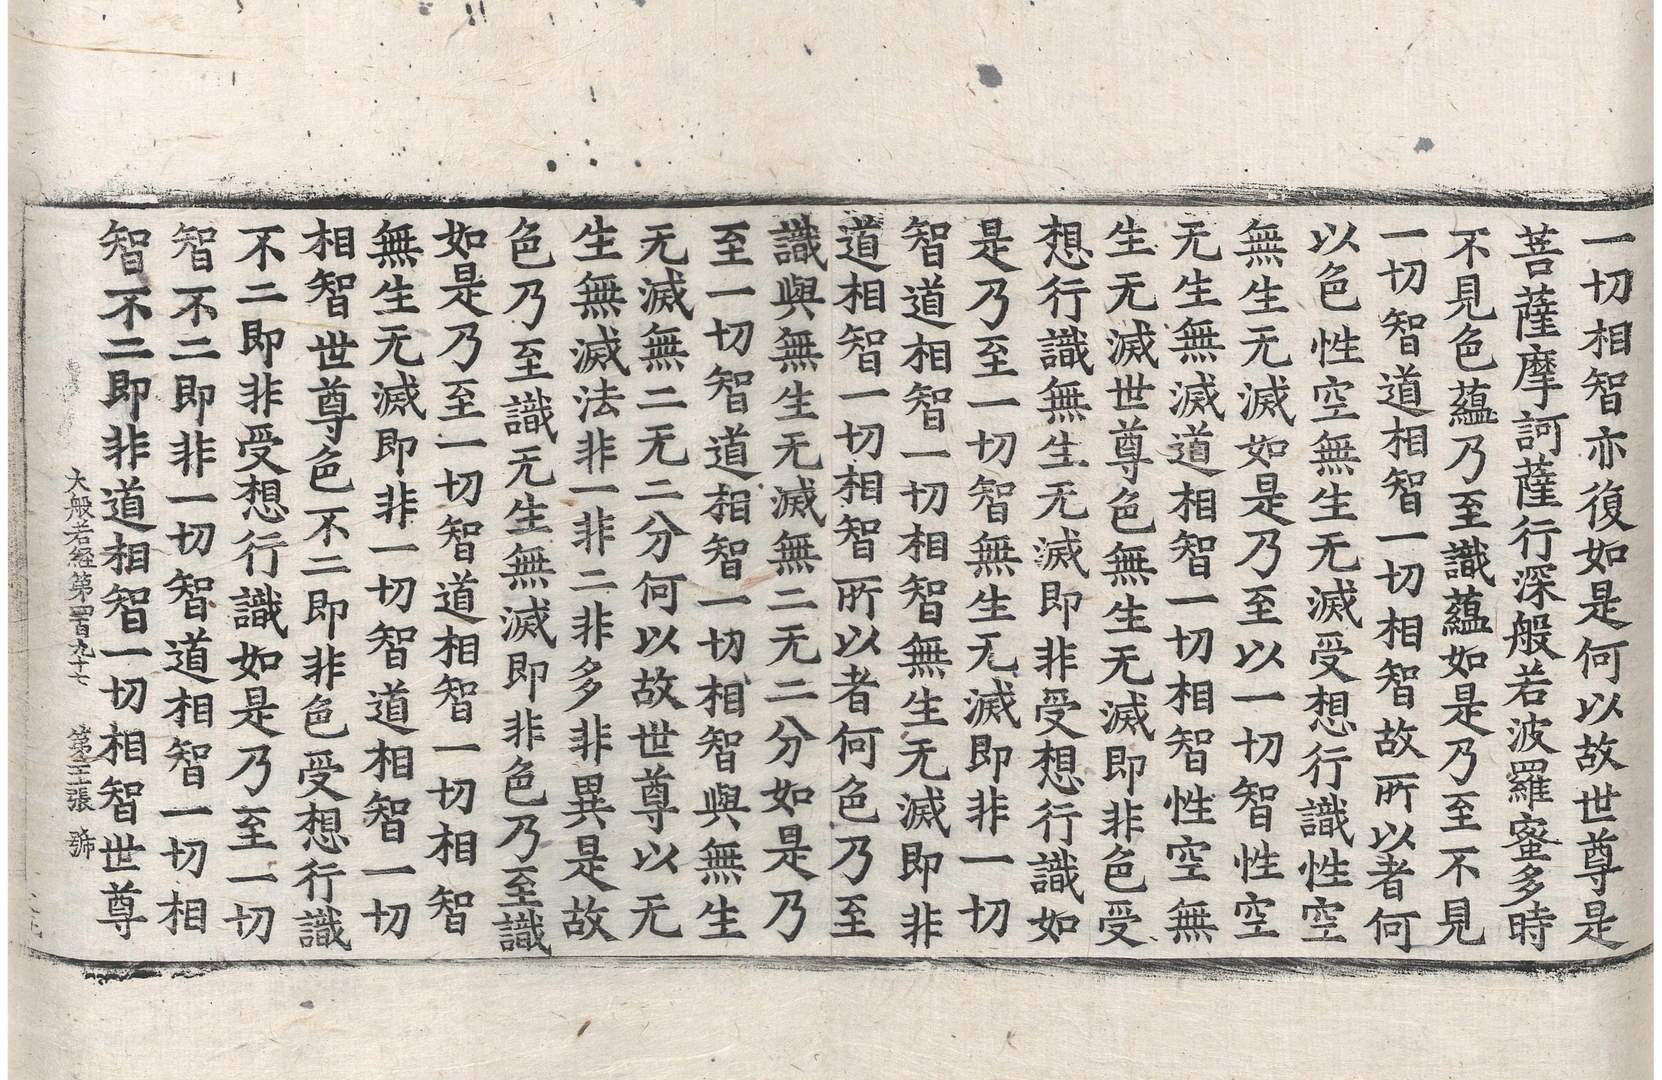 一切相智亦復如是何以故世尊是
菩薩摩訶薩行深般若波羅蜜多時
不見色蘊乃至識蘊如是乃至不見
一切智道相智一切相智故所以者何
以色性空無生无滅受想行識性空
無生无滅如是乃至以一切智性空
无生無滅道相智一切相智性空無
生无滅世尊色無生无滅即非色受
想行識無生无滅即非受想行識如
是乃至一切智無生无滅即非一切
智道相智一切相智無生无滅即非
道相智一切相智所以者何色乃至
識與無生无滅無二无二分如是乃
至一切智道相智一切相智與無生
无滅無二无二分何以故世尊以无
生無滅法非一非二非多非異是故
色乃至識无生無滅即非色乃至識
如是乃至一切智道相智一切相智
無生无滅即非一切智道相智一切
相智世尊色不二即非色受想行識
不二即非受想行識如是乃至一切
智不二即非一切智道相智一切相
智不二即非道相智一切相智世尊
大般若経第四百九十七 第張 號